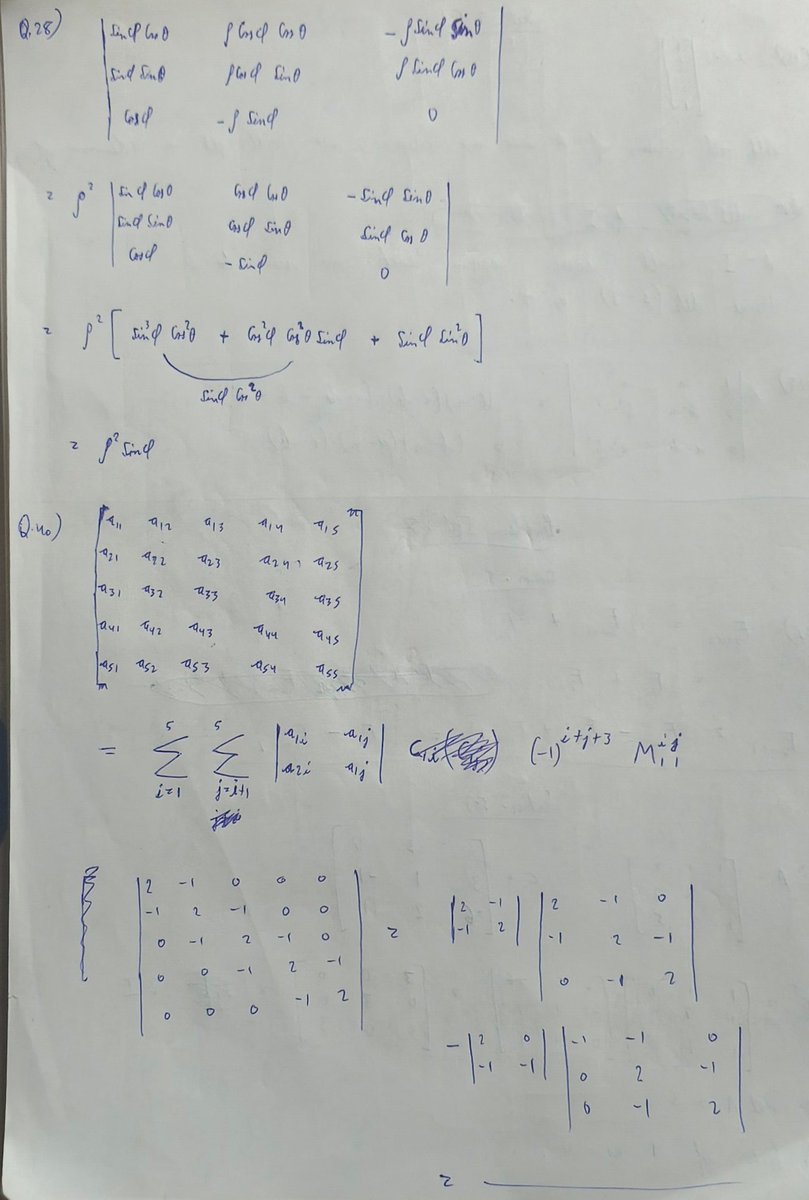 Q.28) | sinφ cosθ ρ cosφ cosθ - ρ sinφ sinθ |
| sinφ sinθ ρ cosφ sinθ ρ sinφ cosθ |
| cosφ - ρ sinφ 0 |
= ρ² | sinφ cosθ cosφ cosθ - sinφ sinθ |
| sinφ sinθ cosφ sinθ sinφ cosθ |
| cosφ - sinφ 0 |
= ρ² [ sin³φ cos²θ + cos²φ cos²θ sinφ + sinφ sin²θ ]
sinφ cos²θ
= ρ² sinφ
Q.40) [ a11 a12 a13 a14 a15 ]
[ a21 a22 a23 a24 a25 ]
[ a31 a32 a33 a34 a35 ]
[ a41 a42 a43 a44 a45 ]
[ a51 a52 a53 a54 a55 ]
= 5∑i=1 5∑j=i+1 | a1i a1j | (-1)^(i+j+3) M^(ij)_(11)
| a2i a1j |
| 2 -1 0 0 0 | = | 2 -1 | | 2 -1 0 |
| -1 2 -1 0 0 | | -1 2 | | -1 2 -1 |
| 0 -1 2 -1 0 | | 0 -1 2 |
| 0 0 -1 2 -1 |
| 0 0 0 -1 2 |
- | 2 0 | | -1 -1 0 |
| -1 -1 | | 0 2 -1 |
| 0 -1 2 |
=